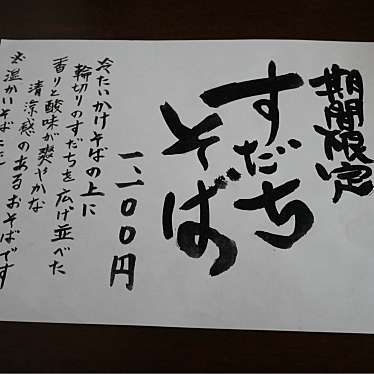 期間限定
すだち
そば
一二〇〇円
冷たいかけそばの上に
輪切りのすだちを広げ並べた
香りと酸味が爽やかな
清涼感のあるおそばです
※温かいそば